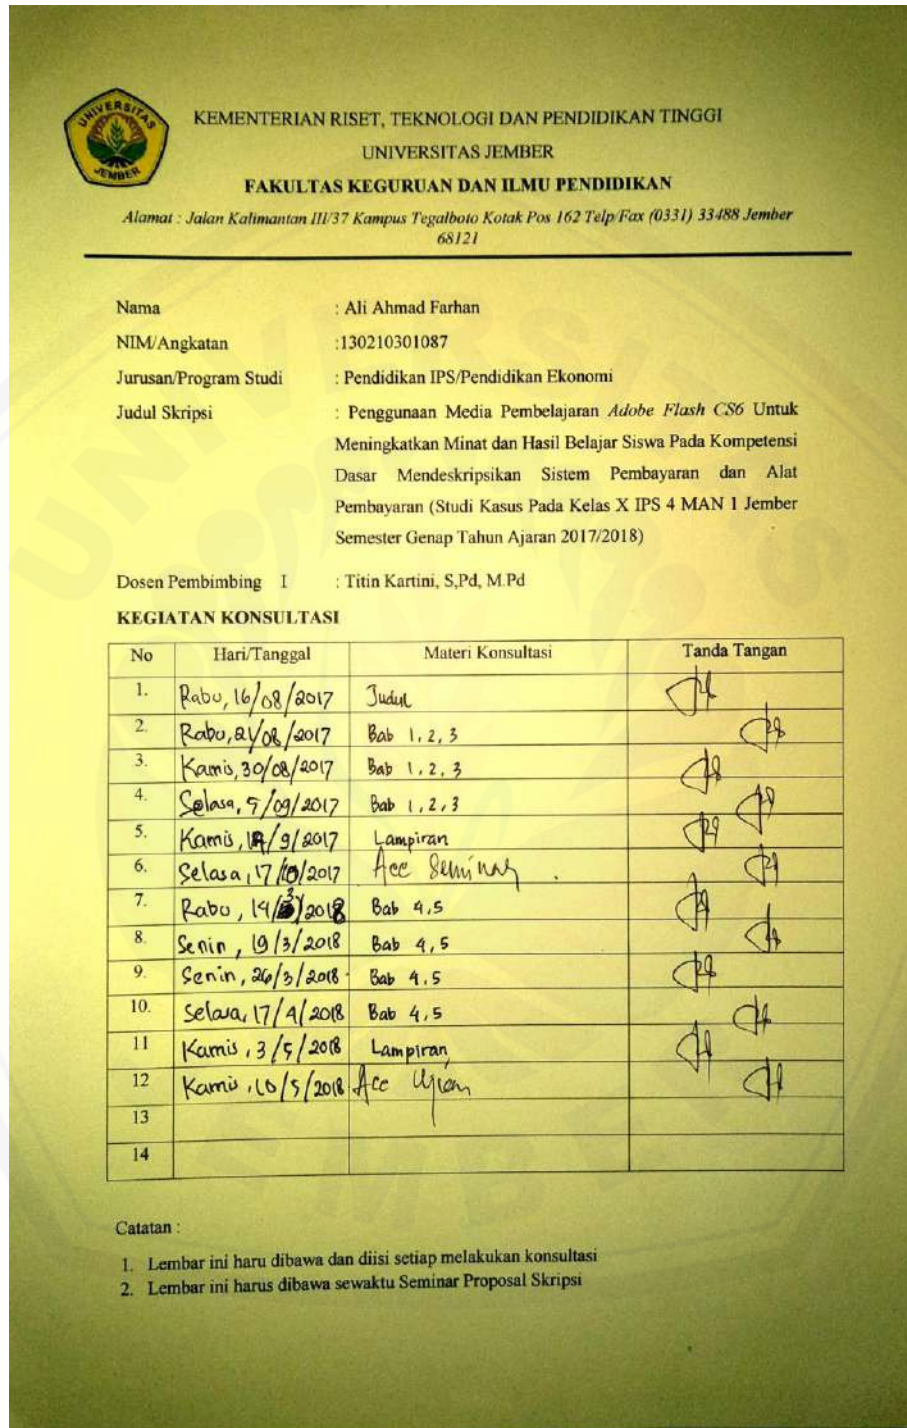 UNIVERSITAS
JEMBER
KEMENTERIAN RISET, TEKNOLOGI DAN PENDIDIKAN TINGGI
UNIVERSITAS JEMBER
FAKULTAS KEGURUAN DAN ILMU PENDIDIKAN
Alamat : Jalan Kalimantan III/37 Kampus Tegalboto Kotak Pos 162 Telp/Fax (0331) 33488 Jember
68121
Nama : Ali Ahmad Farhan
NIM/Angkatan :130210301087
Jurusan/Program Studi : Pendidikan IPS/Pendidikan Ekonomi
Judul Skripsi : Penggunaan Media Pembelajaran Adobe Flash CS6 Untuk
Meningkatkan Minat dan Hasil Belajar Siswa Pada Kompetensi
Dasar Mendeskripsikan Sistem Pembayaran dan Alat
Pembayaran (Studi Kasus Pada Kelas X IPS 4 MAN 1 Jember
Semester Genap Tahun Ajaran 2017/2018)
Dosen Pembimbing I : Titin Kartini, S,Pd, M.Pd
KEGIATAN KONSULTASI
No Hari/Tanggal Materi Konsultasi Tanda Tangan
1. Rabu, 16/08/2017 Judul
2. Rabu, /08/2017 Bab 1, 2, 3
3. Kamis, 30/08/2017 Bab 1, 2, 3
4. Selasa, 5/09/2017 Bab 1, 2, 3
5. Kamis, /9/2017 Lampiran
6. Selasa, 17/10/2017 Acc Seminar
7. Rabu, 14/3/2018 Bab 4,5
8. Senin, 19/3/2018 Bab 4,5
9. Senin, 26/3/2018 Bab 4.5
10. Selasa, 17/4/2018 Bab 4,5
11 Kamis, 3/5/2018 Lampiran
12 Kamis, 10/5/2018 Acc Ujian
13
14
Catatan :
1. Lembar ini haru dibawa dan diisi setiap melakukan konsultasi
2. Lembar ini harus dibawa sewaktu Seminar Proposal Skripsi